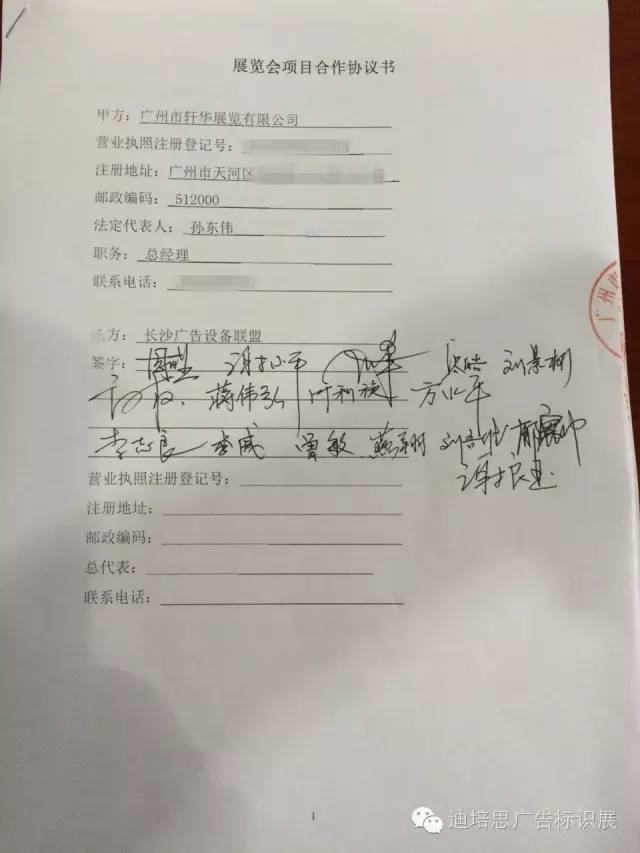 展览会项目合作协议书
甲方：广州市轩华展览有限公司
营业执照注册登记号：
注册地址：广州市天河区
邮政编码：512000
法定代表人：孙东伟
职务：总经理
联系电话：
方：长沙广告设备联盟
签字：
刘景彬
蒋伟弘
李志良 李威 曾敏
营业执照注册登记号：
注册地址：
邮政编码：
总代表：
联系电话：
广州市
1
迪培思广告标识展